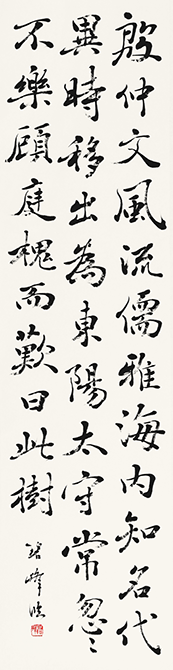 殷仲文風流儒雅海内知名代
異時移出為東陽太守常忽〻
不樂顧庭槐而歎曰此樹
峰臨